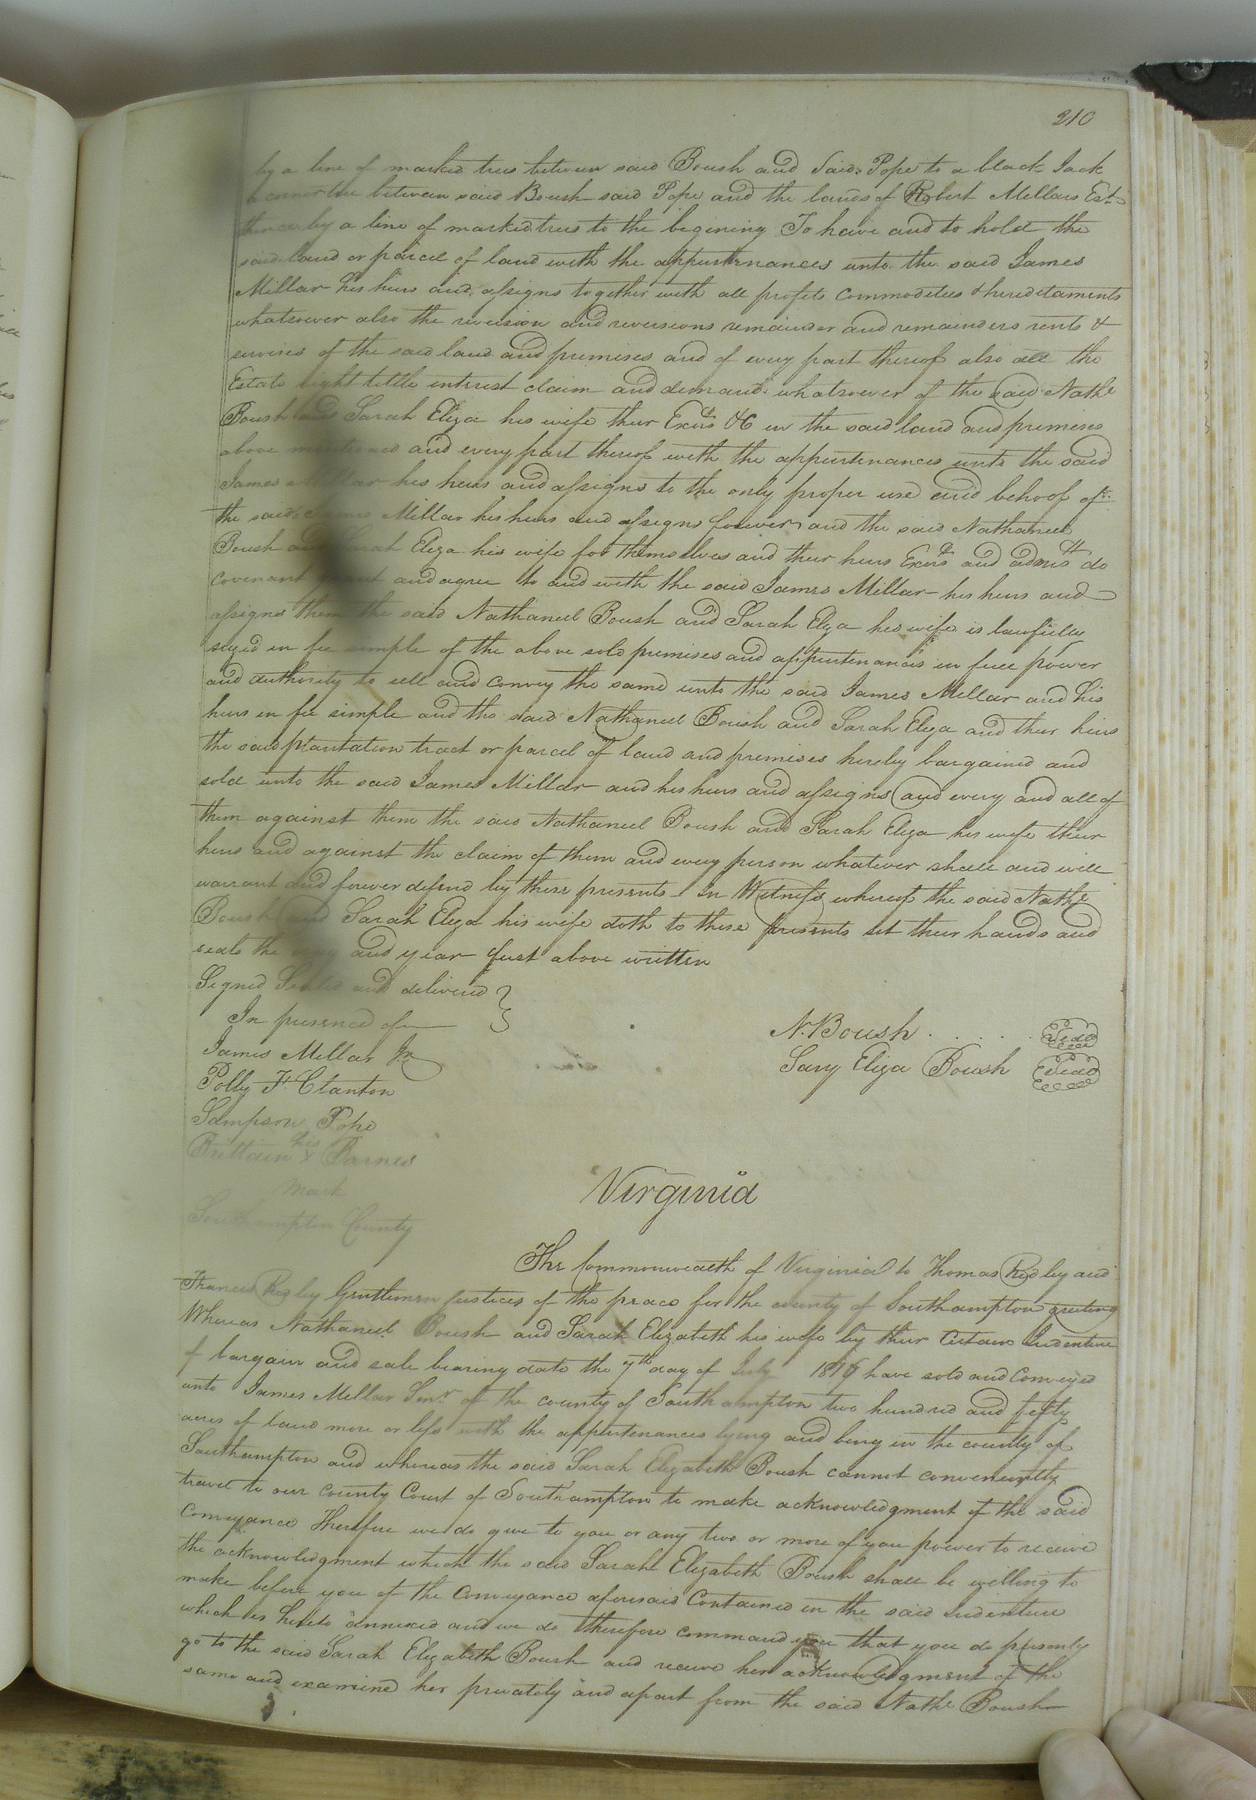 210
by a line of marked trees between said Boush and Said Pope to a black Jack
a corner tree between said Boush said Pope and the lands of Robert Millars Est
thence by a line of marked trees to the begining To have and to hold the
said land or parcel of land with the appurtenances unto the said James
Millar his heirs and assigns together with all profits commodities & hereditaments
whatsoever also the revision and reversions remainder and remainders rents &
services of the said land and premises and of every part thereof also all the
Estate right tittle interest claim and demand whatsoever of the said Nathl
Boush and Sarah Eliza his wife their Exers &C in the said land and premises
above mentioned and every part thereof with the appurtenances unto the said
James Millar his heirs and assigns to the only proper use and behoof of
the said James Millar his heirs and assigns forever and the said Nathaniel
Boush and Sarah Eliza his wife for themselves and their heirs Exers and admrs do
covenant grant and agree to and with the said James Millar his heirs and
assigns them the said Nathaniel Boush and Sarah Eliza his wife is lawfully
seizd in fee simple of the above sold premises and appurtenances in free power
and authority to sell and convey the same unto the said James Millar and his
heirs in fee simple and the said Nathaniel Boush and Sarah Eliza and their heirs
the said plantation tract or parcel of land and premises hereby bargained and
sold unto the said James Millar and his heirs and assigns and every and all of
them against them the said Nathaniel Boush and Sarah Eliza his wife their
heirs and against the claim of them and every person whatever shall and will
warrant and forever defend by these presents In Witness whereof the said Nathl
Boush and Sarah Eliza his wife doth to these presents set their hands and
seals the day and year first above written
Signed Sealed and delivered
In presence of
James Millar Jr
Polly F. Clanton
Sampson Pope
Brittain his x Barnes
mark
N. Boush . . . . . Seal
Sary Eliza Boush Seal
Virginia
Southampton County
The Commonwealth of Virginia to Thomas Ridley and
Francis Ridley Gentlemen justices of the peace for the county of Southampton greeting
Whereas Nathaniel Boush and Sarah Elizabeth his wife by their certain Indenture
of bargain and sale bearing date the 7th day of July have sold and conveyed
unto James Millar Senr of the county of Southampton two hundred and fifty
acres of land more or less with the appurtenances lying and being in the county of
Southampton and whereas the said Sarah Elizabeth Boush cannot conveniently
travel to our county Court of Southampton to make acknowledgment of the said
conveyance Therefore we do give to you or any two or more of you power to receive
the acknowledgment which the said Sarah Elizabeth Boush shall be willing to
make before you of the conveyance aforesaid contained in the said Indenture
which is hereto annexed and we do therefore command you that you do personly
go to the said Sarah Elizabeth Boush and receive her acknowledgment of the
same and examine her privately and apart from the said Nathl Boush